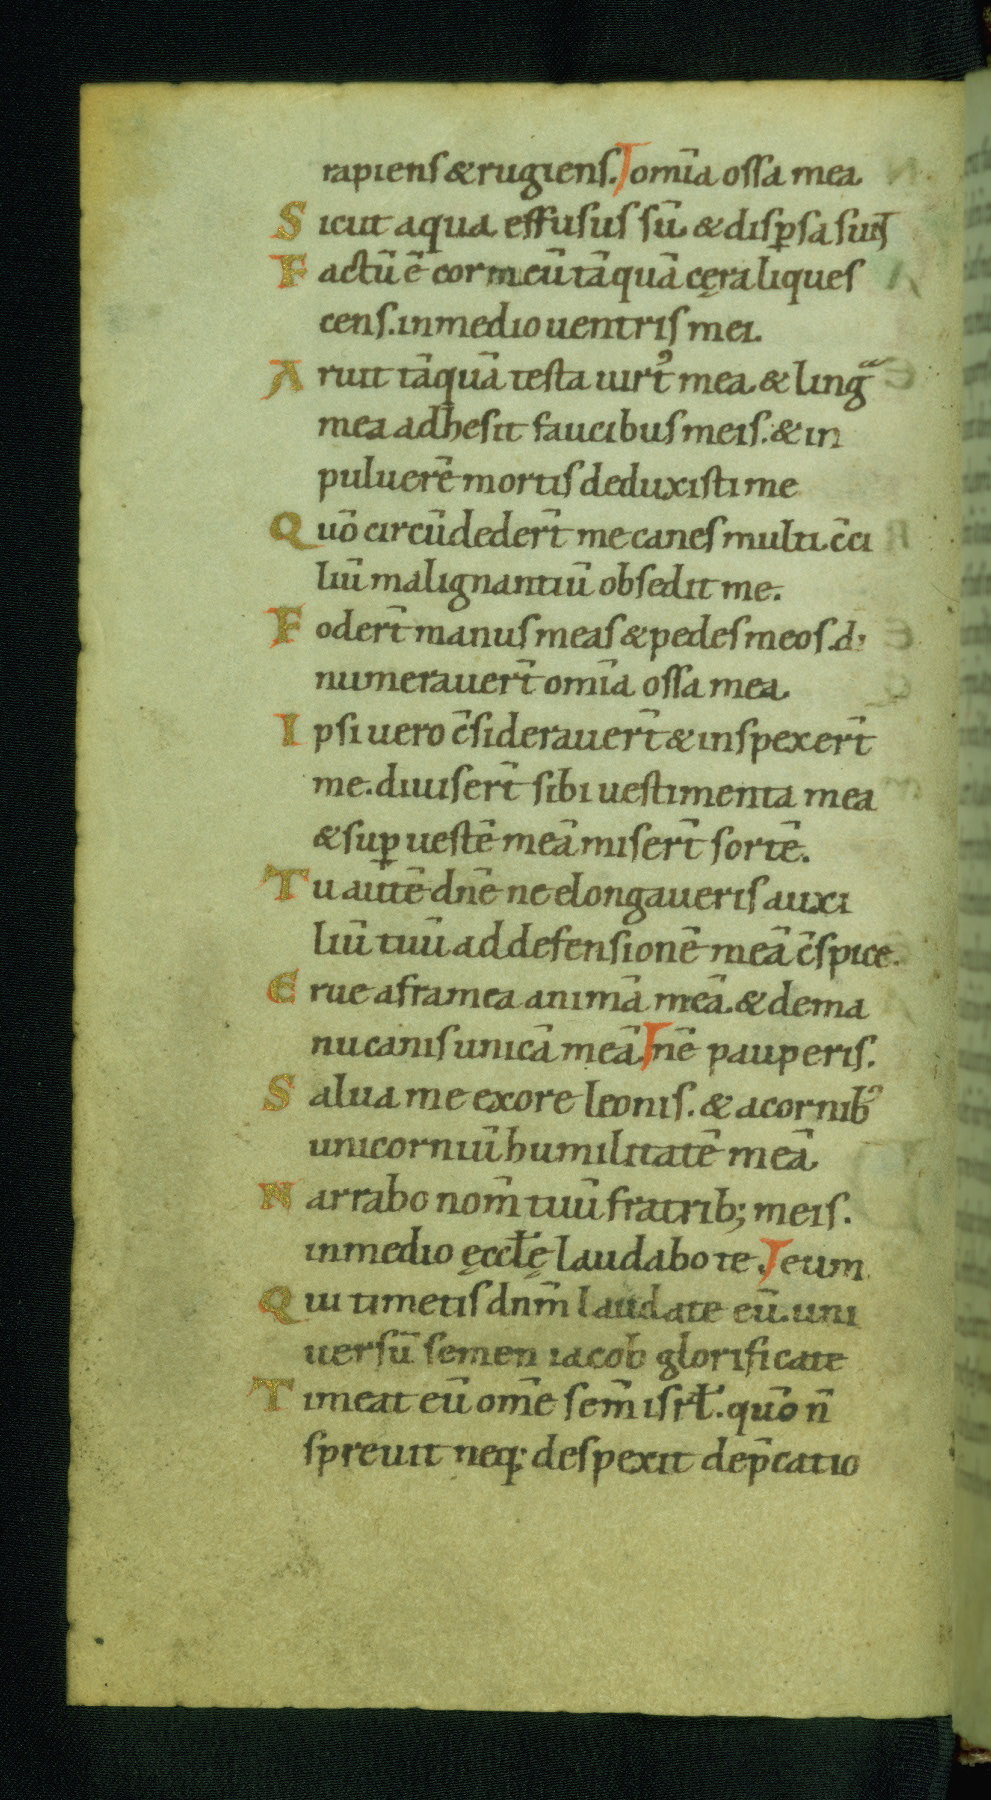 rapiens & rugiens. omīa ossa mea
Sicut aqua effusus sū. & disp̄sa sunt
Factū ē cor meū tāquā cęra liques
cens. inmedio uentris mei.
Aruit tāquā testa uirt᷒ mea. & lingᷓ
mea adhesit faucibus meis. & in
puluerē mortis deduxisti me
Quō circūdeder̄t me canes multi. c̄ci
liū malignantiū obsedit me.
Foder̄t manus meas & pedes meos. d:
numerauer̄t omīa ossa mea.
Ipsi uero c̄siderauer̄t & inspexer̄t
me. diuiser̄t sibi uestimenta mea
& sup̱ uestē meā miser̄t sortē.
Tu autē dn̄e ne elongaueris auxi
liū tuū ad defensionē meā c̄spice.
Erue aframea animā meā. & dema
nu canis unicā meā. nē pauperis.
Salua me exore leonis. & acornib᷒
unicorniū humilitatē meā
Narrabo nom̄ tuū fratrib; meis.
inmedio ęccłę laudabo te. eum
Qui timetis dn̄m laudate eū. uni
uersū semen iacob glorificate
Timeat eū om̄e sem̄ isrł. quō n̄
spreuit neq; despexit dep̄catio